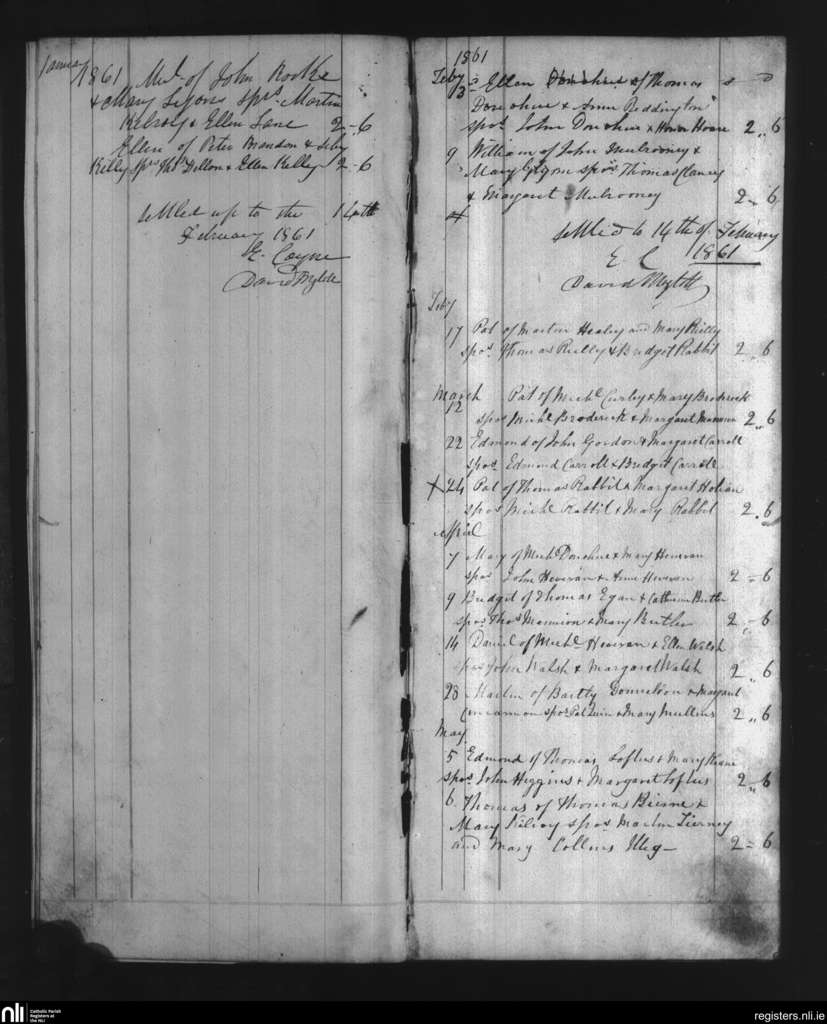 1861 Michl of John Rooke
& Mary Lyons spos. Martin
Kelroy & Ellen Lane 2-6
Ellen of Peter Brandon &
Kelly spos Thos Dillon & Ellen Kelly 2-6
settled up to the 14th
February 1861
E. Coyne
David Mylott
1861
Feby
3 Ellen of Thomas
Donohue & Anne Reddington
spos John Donohue & Honor Hoare 2,,6
9 William of John Mulrooney &
Mary Glynn spos Thomas Clancy
& Margaret Mulrooney 2,,6
settled to 14th of February
E. C 1861
David Mylott
Feby
17 Pat of Martin Healey and Mary Reilly
spos. Thomas Reilly & Bridget Rabbit 2,,6
March Pat of Michl Curley & Mary Broderick
12
spos Michl Broderick & Margaret 2,,6
22 Edmond of John Gordon & Margaret Carroll
spos. Edmond Carroll & Bridget Carroll
X 24 Pat of Thomas Rabbit & Margaret Holian
spos Michl Rabbit & Mary Rabbit 2,,6
April
7 Mary of Michl Donohue & Mary Heveran
spos John Heveran & Anne Heveran 2=6
9 Bridget of Thomas Egan & Catherine Butler
spos Thos Mannion & Mary Butler 2,,6
14 Daniel of Michl Heveran & Ellen Walsh
spos John Walsh & Margaret Walsh 2,,6
28 Martin of Bartty Donnellon & Margaret
Concannon spos Pat Quin & Mary Mullins 2,,6
May
5 Edmond of Thomas Loftus & Mary Keane
spos John Higgins & Margaret Loftus 2,,6
6 Thomas of Thomas Bierne &
Mary Kilroy spos Martin Tierney
and Mary Collins Illeg- 2=6
nli
Catholic Parish
Registers at
the NLI
registers.nli.ie